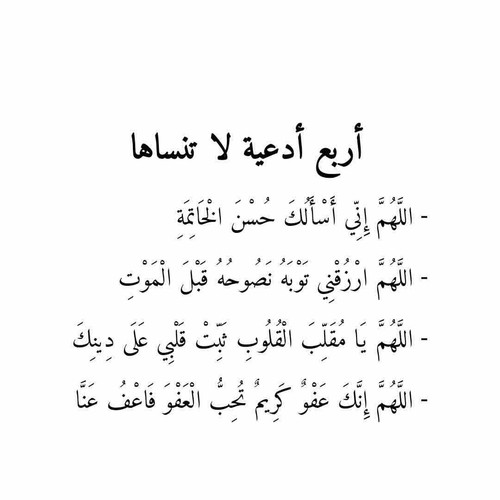 أربع أدعية لا تنساها
- اللَّهُمَّ إِنِّي أَسْأَلُكَ حُسْنَ الْخَاتِمَةِ
- اللَّهُمَّ ارْزُقْنِي تَوْبَهُ نَصُوحُهُ قَبْلَ الْمَوْتِ
- اللَّهُمَّ يَا مُقَلِّبَ الْقُلُوبِ ثَبِّتْ قَلْبِي عَلَى دِينِكَ
- اللَّهُمَّ إِنَّكَ عَفْوٌ كَرِيمٌ تُحِبُّ الْعَفْوَ فَاعْفُ عَنَّا